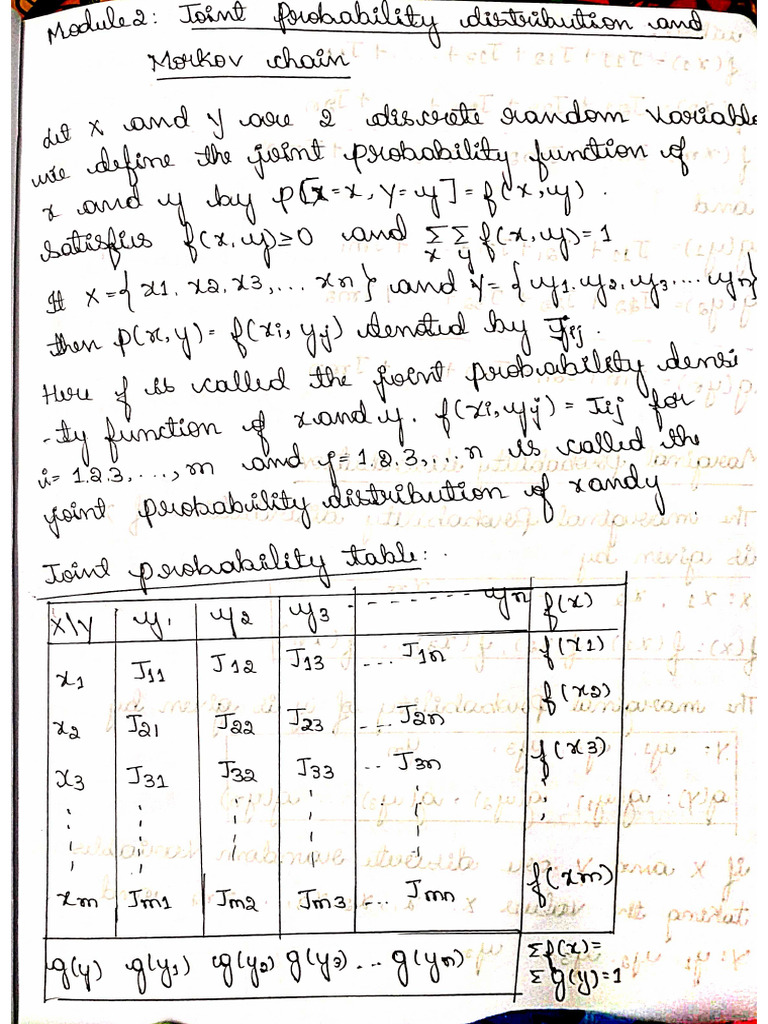 Module 2: Joint probability distribution and
Morkov chain
Let x and y are 2 discrete random variable
we define the joint probability function of
x and y by P[X=x, Y=y] = f(x,y).
satisfies f(x,y)≥0 and Σx Σy f(x,y)=1
If X={x1, x2, x3, ... xn} and Y={y1, y2, y3 .... yn}
then P(x,y)= f(xi, yj) denoted by Jij.
Here f is called the joint probability densi
-ty function of x and y. f(xi, yj) = Jij for
i= 1,2,3, ..., m and j= 1,2,3, ... n is called the
joint probability distribution of x and y
Joint probability table:
X\Y y1 y2 y3 ------- yn f(x)
x1 J11 J12 J13 ... J1n f(x1)
x2 J21 J22 J23 ... J2n f(x2)
x3 J31 J32 J33 .. J3n f(x3)
xm Jm1 Jm2 Jm3 ... Jmn f(xm)
g(y) g(y1) g(y2) g(y3) ... g(yn) Σf(x)=
Σg(y)=1